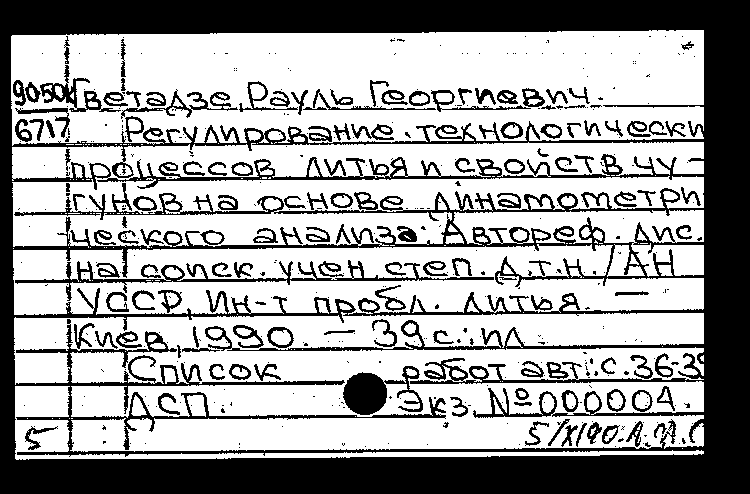 90-50К Гветадзе, Рауль Георгиевич.
6717 Регулирование технологически
процессов литья и свойств чу-
гунов на основе динамометри
ческого анализа: Автореф. дис.
на соиск. учен. степ. д.т.н. / АН
УССР, Ин-т пробл. литья. —
Киев, 1990. — 39 с.: ил.
Список работ авт.: с. 36-39
ДСП. Экз. № 000004.
5 5/XI90.